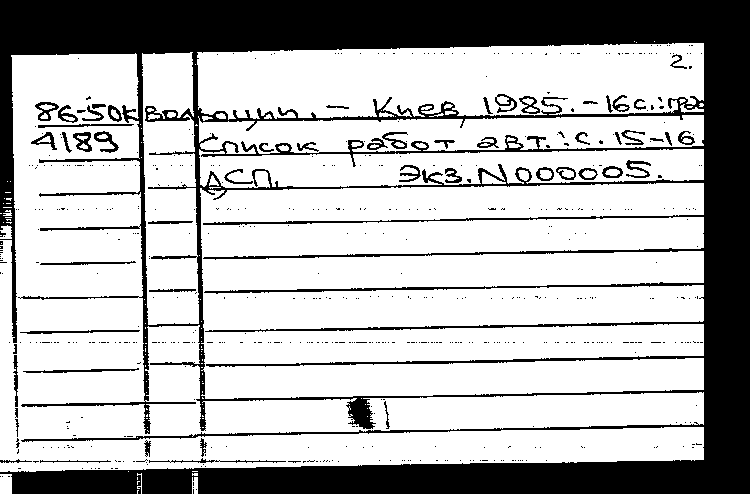 2.
86-50к волюции. – Киев, 1985. – 16с.: граф
4189 Список работ авт.: с. 15-16.
ДСП. Экз. N000005.